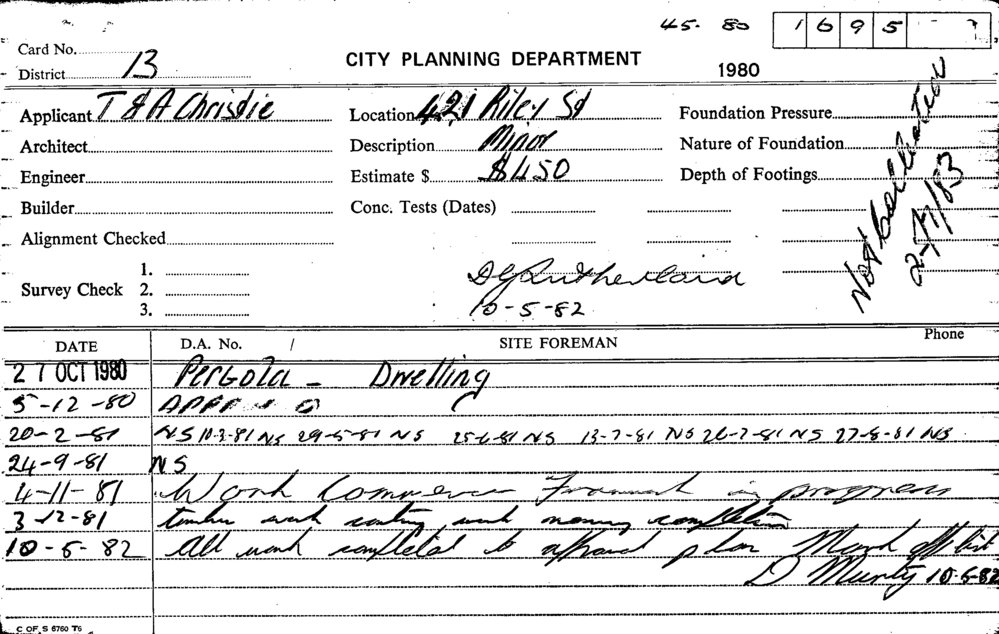 45. 80 1695
Card No.
District 13
CITY PLANNING DEPARTMENT
1980
Applicant T & A Christie
Location 421 Riley St
Foundation Pressure
Architect
Description Minor
Nature of Foundation
Engineer
Estimate $ $450
Depth of Footings
Builder
Conc. Tests (Dates)
Alignment Checked
Survey Check
1.
2.
3.
Rutherland
10-5-82
Not
DATE D.A. No. / SITE FOREMAN Phone
27 OCT 1980 Pergola - Dwelling
5-12-80
20-2-81 NS 10-3-81 NS 29-5-81 NS 25-6-81 NS 13-7-81 NS 26-7-81 NS 27-8-81 NS
24-9-81 NS
4-11-81 Work Commence Framework in progress
3-12-81 timber work work nearing completion
10-5-82 All work completed to approved plan Mark off list
D Munty 10-5-82
C OF S 6760 T6